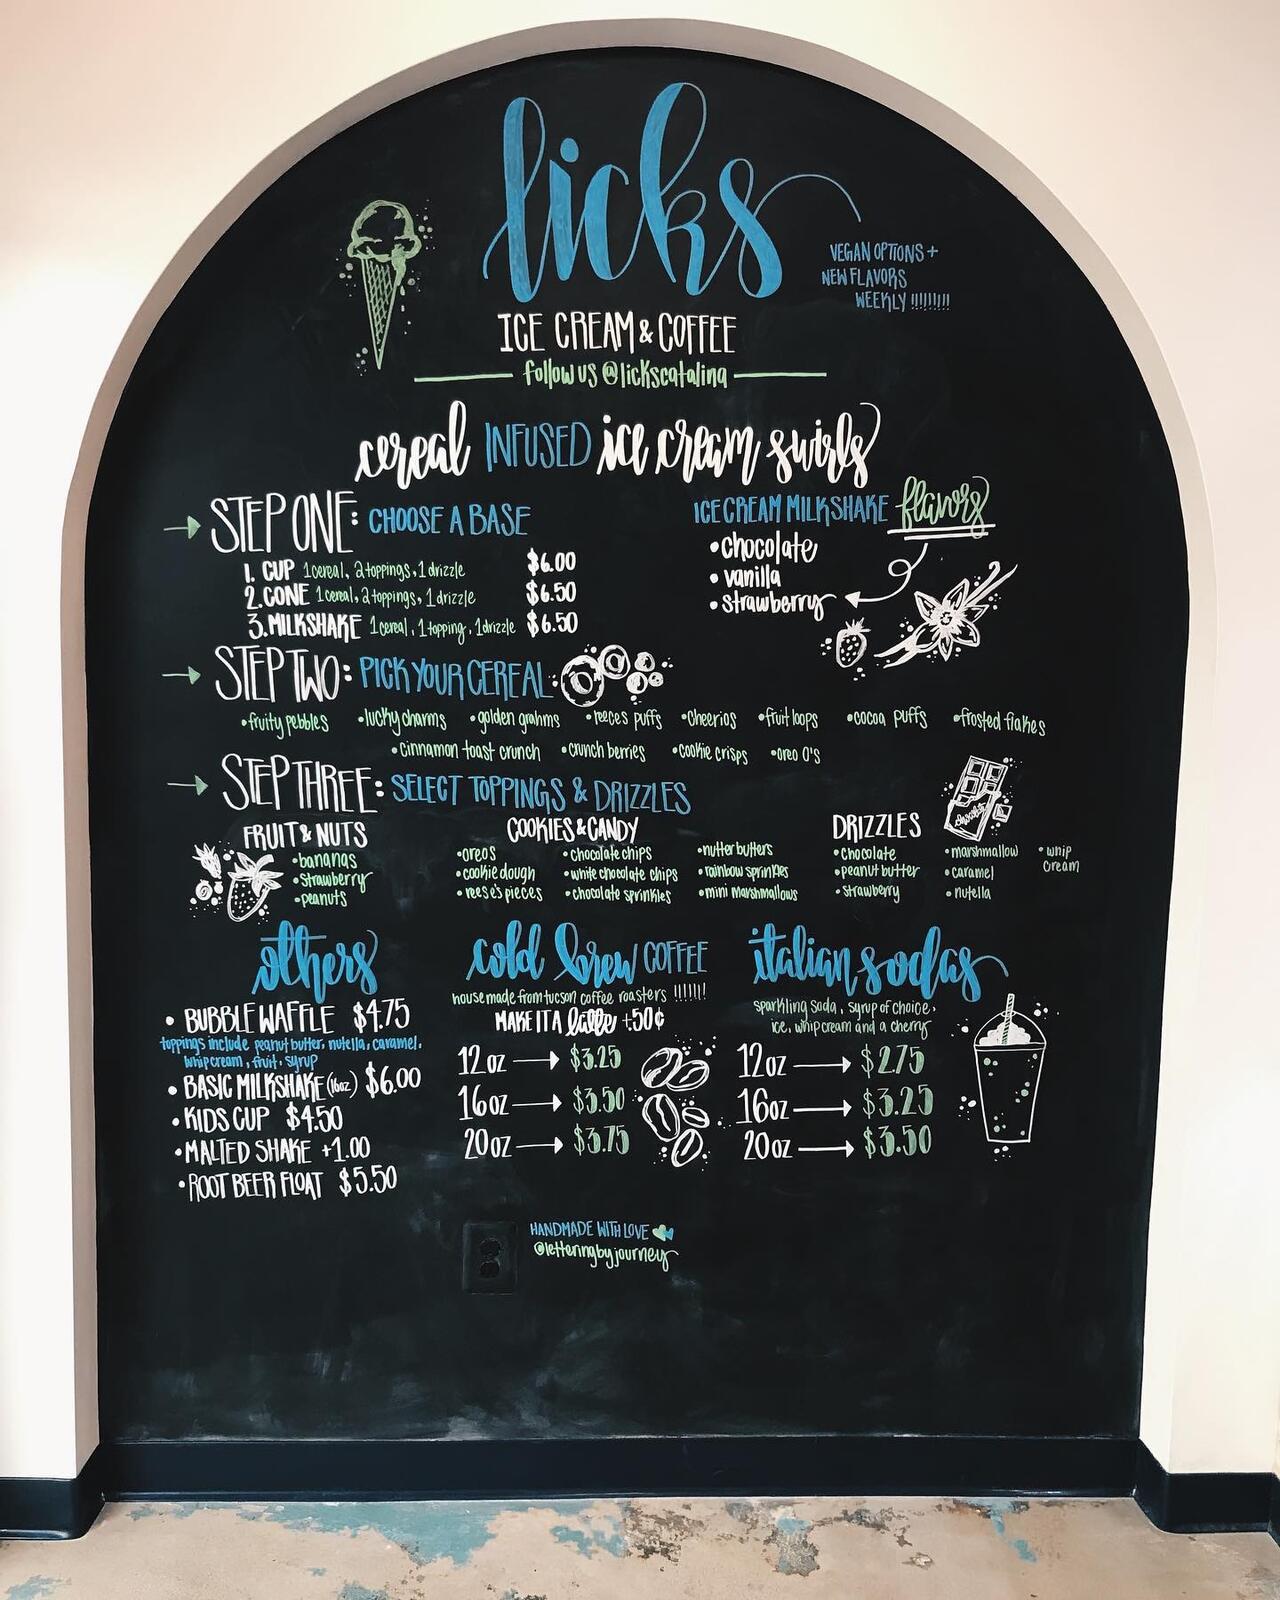 licks
VEGAN OPTIONS +
NEW FLAVORS
WEEKLY !!!!!!!!!
ICE CREAM & COFFEE
follow us @lickscatalina
cereal INFUSED ice cream swirls
STEP ONE: CHOOSE A BASE
1. CUP 1 cereal, 2 toppings, 1 drizzle $6.00
2. CONE 1 cereal, 2 toppings, 1 drizzle $6.50
3. MILKSHAKE 1 cereal, 1 topping, 1 drizzle $6.50
ICE CREAM MILKSHAKE flavors
• chocolate
• vanilla
• strawberry
STEP TWO: PICK YOUR CEREAL
• fruity pebbles • lucky charms • golden grahms • reeces puffs • cheerios • fruit loops • cocoa puffs • frosted flakes
• cinnamon toast crunch • crunch berries • cookie crisps • oreo O's
STEP THREE: SELECT TOPPINGS & DRIZZLES
FRUIT & NUTS
• bananas
• strawberry
• peanuts
COOKIES & CANDY
• oreos • chocolate chips • nutter butters
• cookie dough • white chocolate chips • rainbow sprinkles
• reese's pieces • chocolate sprinkles • mini marshmallows
DRIZZLES
• chocolate • marshmallow • whip
cream
• peanut butter • caramel
• strawberry • nutella
chocolate
others
• BUBBLE WAFFLE $4.75
toppings include peanut butter, nutella, caramel,
whip cream, fruit, syrup
• BASIC MILKSHAKE (16oz) $6.00
• KIDS CUP $4.50
• MALTED SHAKE +1.00
• ROOT BEER FLOAT $5.50
cold brew COFFEE
housemade from tucson coffee roasters !!!!!!!
MAKE IT A latte +.50¢
12oz $3.25
16oz $3.50
20oz $3.75
italian sodas
sparkling soda, syrup of choice,
ice, whip cream and a cherry
12oz $2.75
16oz $3.25
20oz $3.50
HANDMADE WITH LOVE
@letteringbyjourney